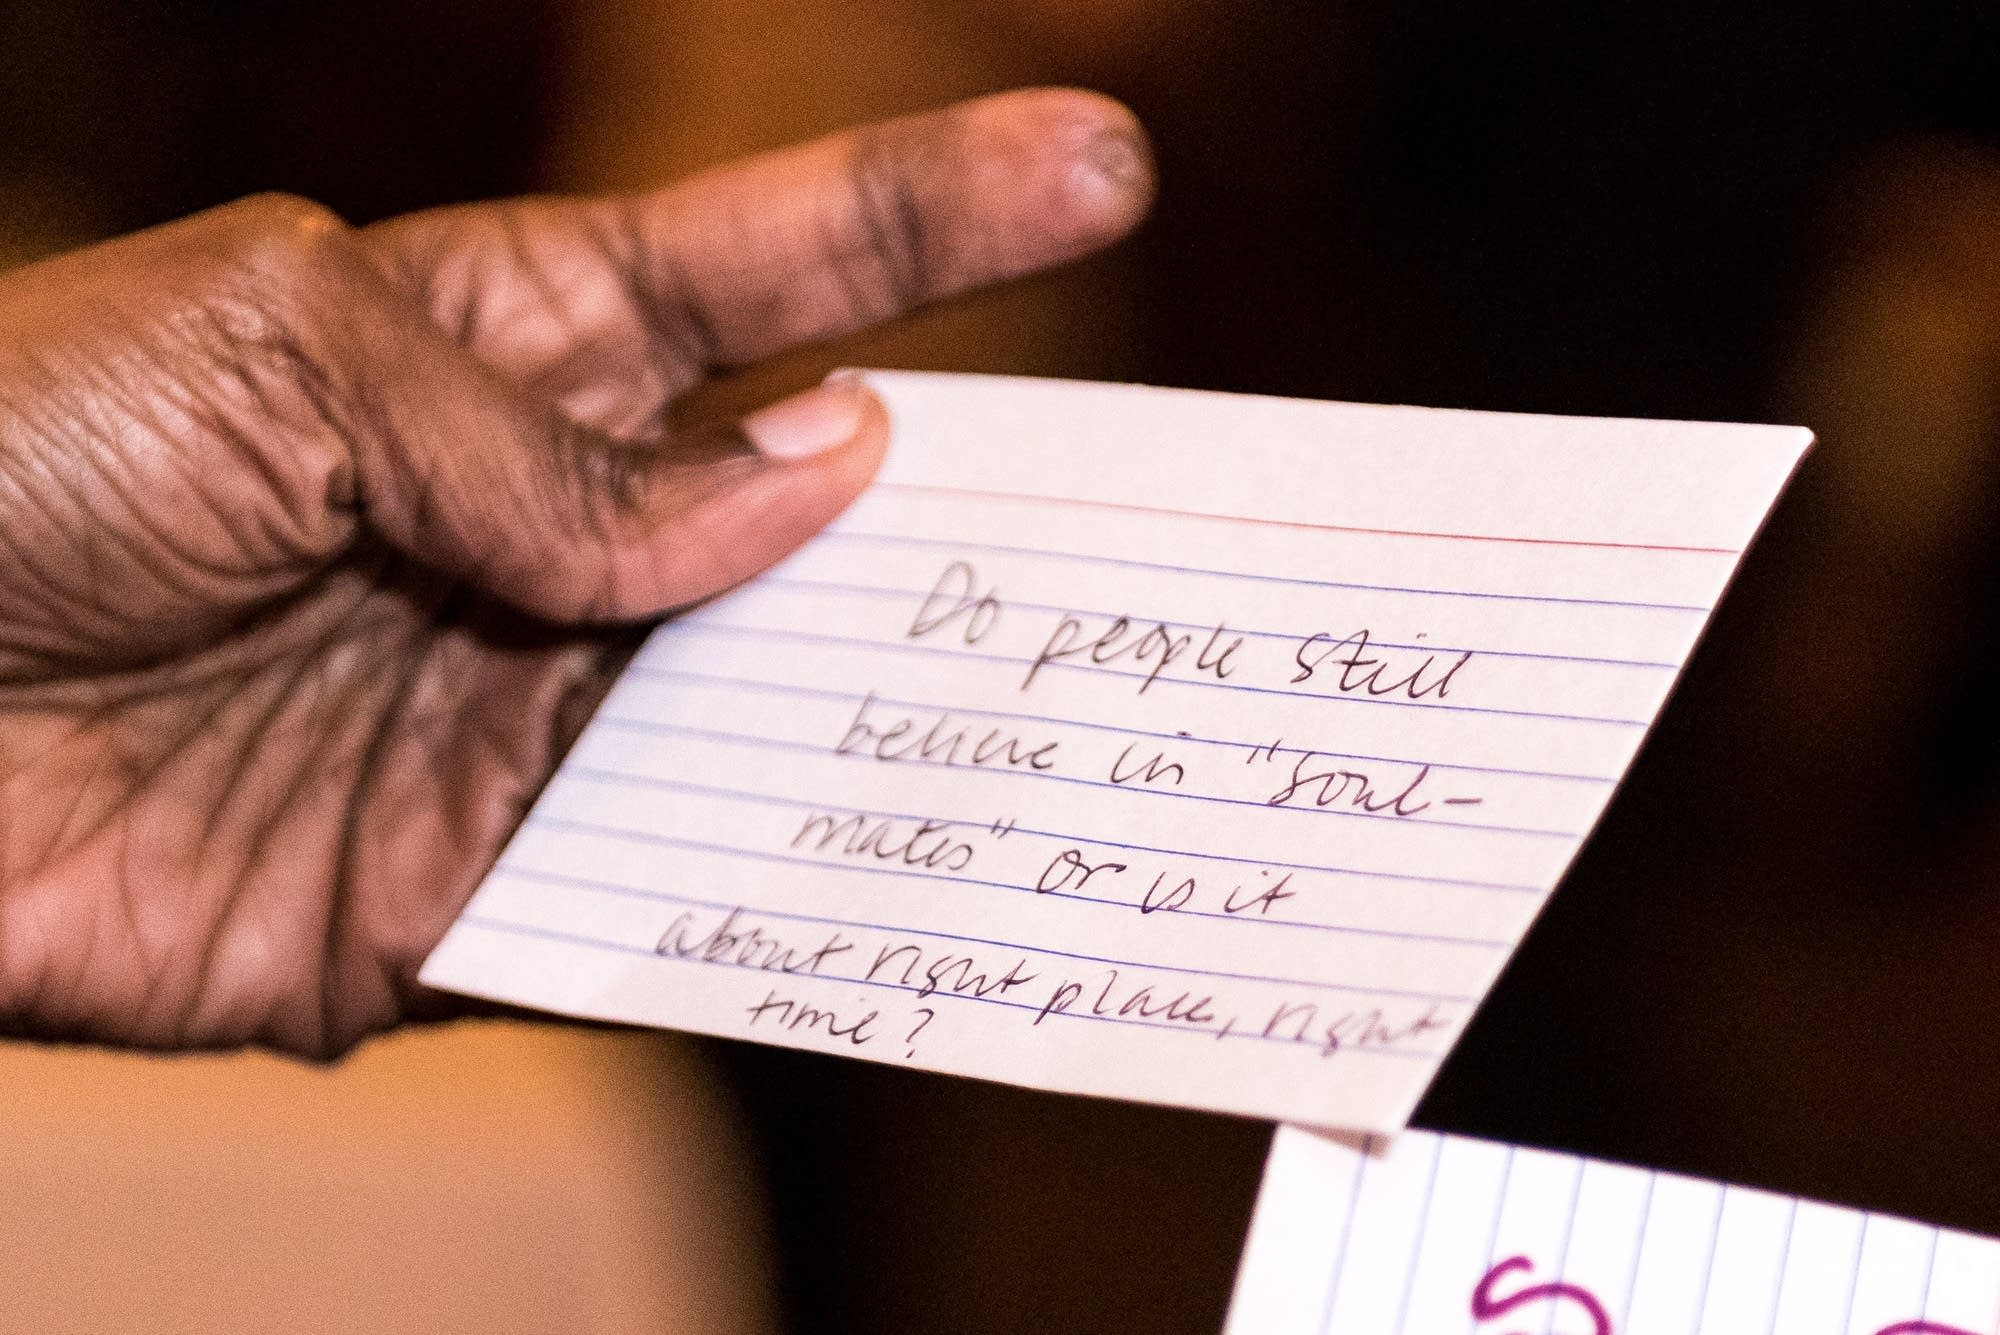 Do people still
believe in "soul-
mates" or is it
about right place, right
time?